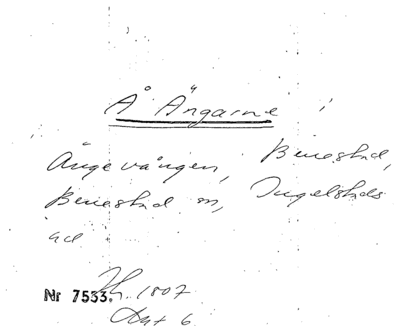 Å Ängarne
Ängevången, Benestad,
Benestad sn, Ingelstads
hd
Nr 7533. Th. 1807
Akt 6